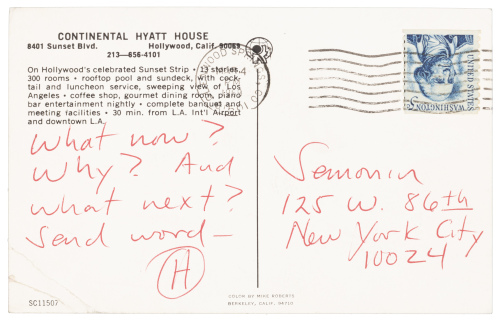 CONTINENTAL HYATT HOUSE
8401 Sunset Blvd. Hollywood, Calif. 90069
213—656-4101
On Hollywood's celebrated Sunset Strip • 13 stories,
300 rooms • rooftop pool and sundeck, with cock-
tail and luncheon service, sweeping view of Los
Angeles • coffee shop, gourmet dining room, piano
bar entertainment nightly • complete banquet and
meeting facilities • 30 min. from L.A. Int'l Airport
and downtown L.A.
What now?
Why? And
what next?
Send word—
H
SC11507
COLOR BY MIKE ROBERTS
BERKELEY, CALIF. 94710
UNITED STATES
WASHINGTON
5c
Semonin
125 W. 86th
New York City
10024